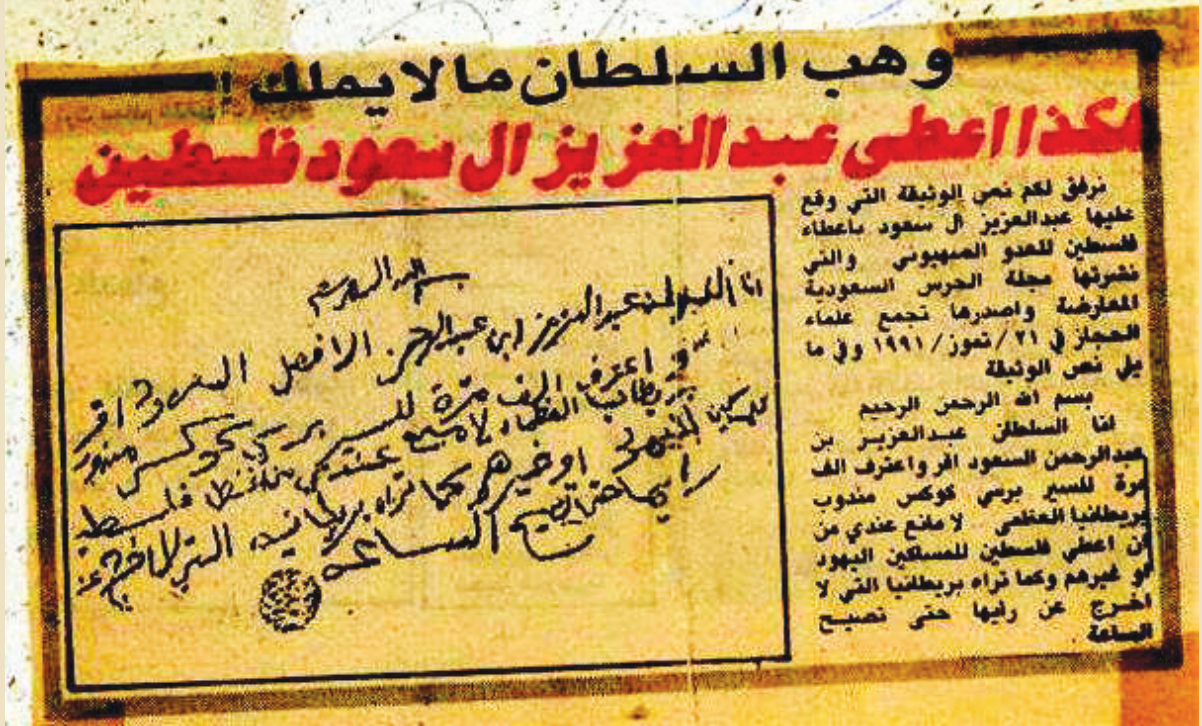 وهب السلطان مالايملك !
هكذا اعطى عبد العزيز ال سعود فلسطين
نرفق لكم نص الوثيقة التي وقع
عليها عبدالعزيز ال سعود باعطاء
فلسطين للعدو الصهيوني والتي
نشرتها مجلة الحرس السعودية
المعارضة واصدرها تجمع علماء
الحجاز في ٢١/تموز/١٩٩١ وفي ما
يلي نص الوثيقة
بسم الله الرحمن الرحيم
انا السلطان عبدالعزيز بن
عبدالرحمن السعود اقر واعترف الف
مرة للسير برسي كوكس مندوب
بريطانيا العظمى لا مانع عندي من
ان اعطي فلسطين للمساكين اليهود
او غيرهم وكما تراه بريطانيا التي لا
اخرج عن رايها حتى تصيح
الساعة
بسم الله الرحمن الرحيم
انا السلطان عبد العزيز ابن عبد الرحمن الفيصل السعود اقر
و اعترف الف مرة للسر برسي كوكس مندوب
بريطانيا العظمى لا مانع عندي من اعطي فلسطين
للمساكين اليهود او غيرهم كما تراه بريطانيا التي لا اخرج عن
رايها حتى تصيح الساعه